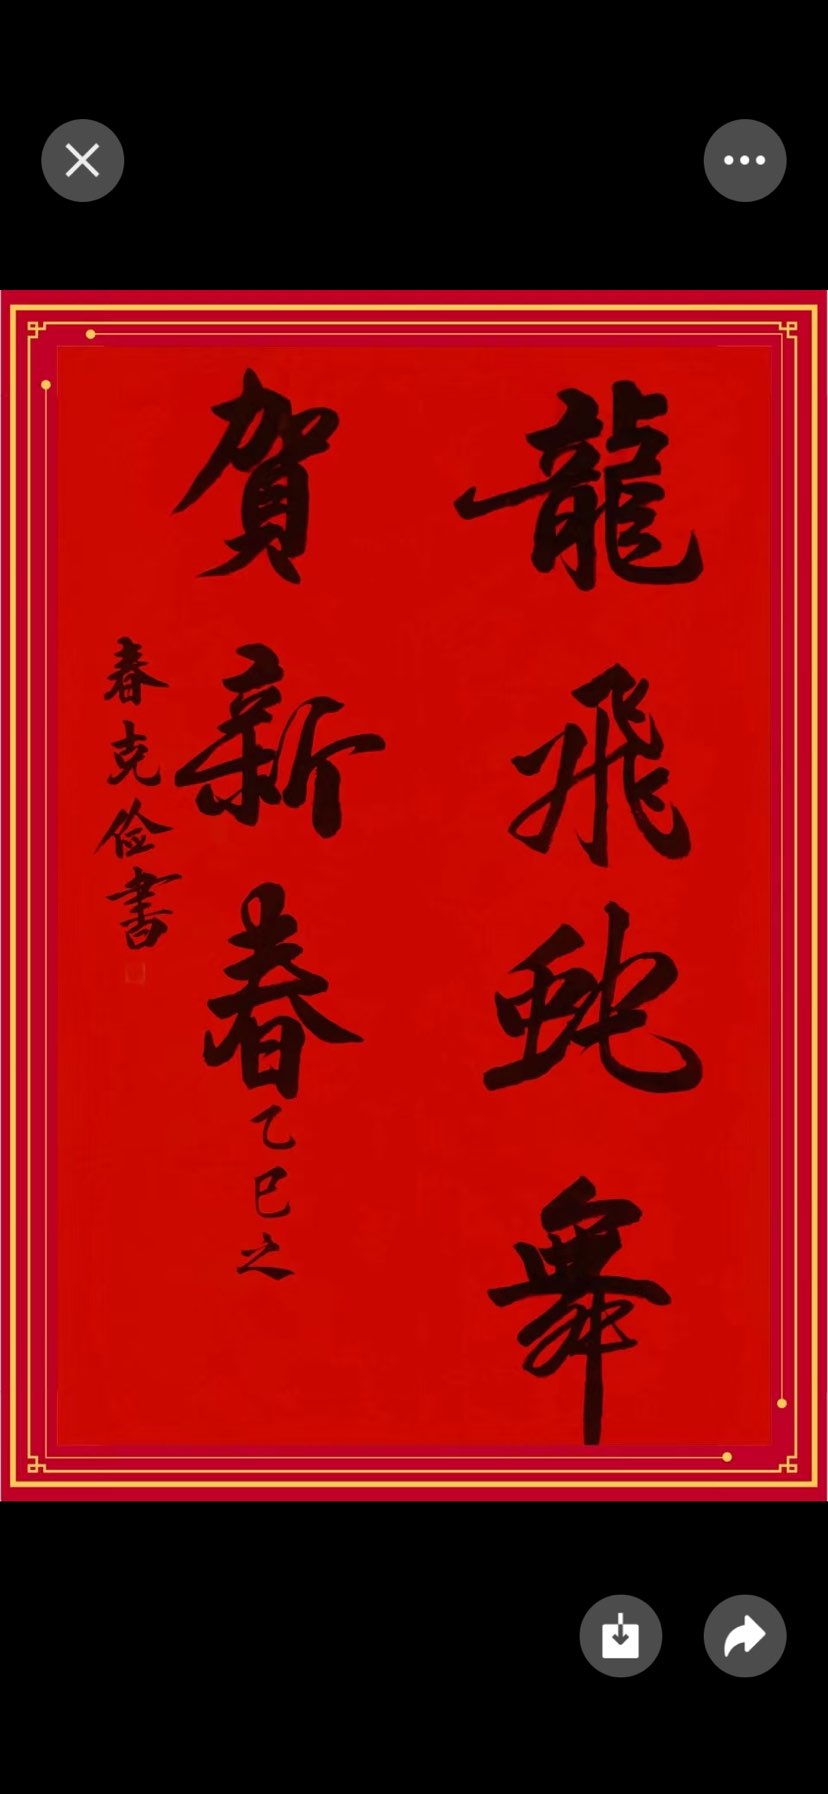 龍飛蛇舞
賀新春乙巳之
春克俭書